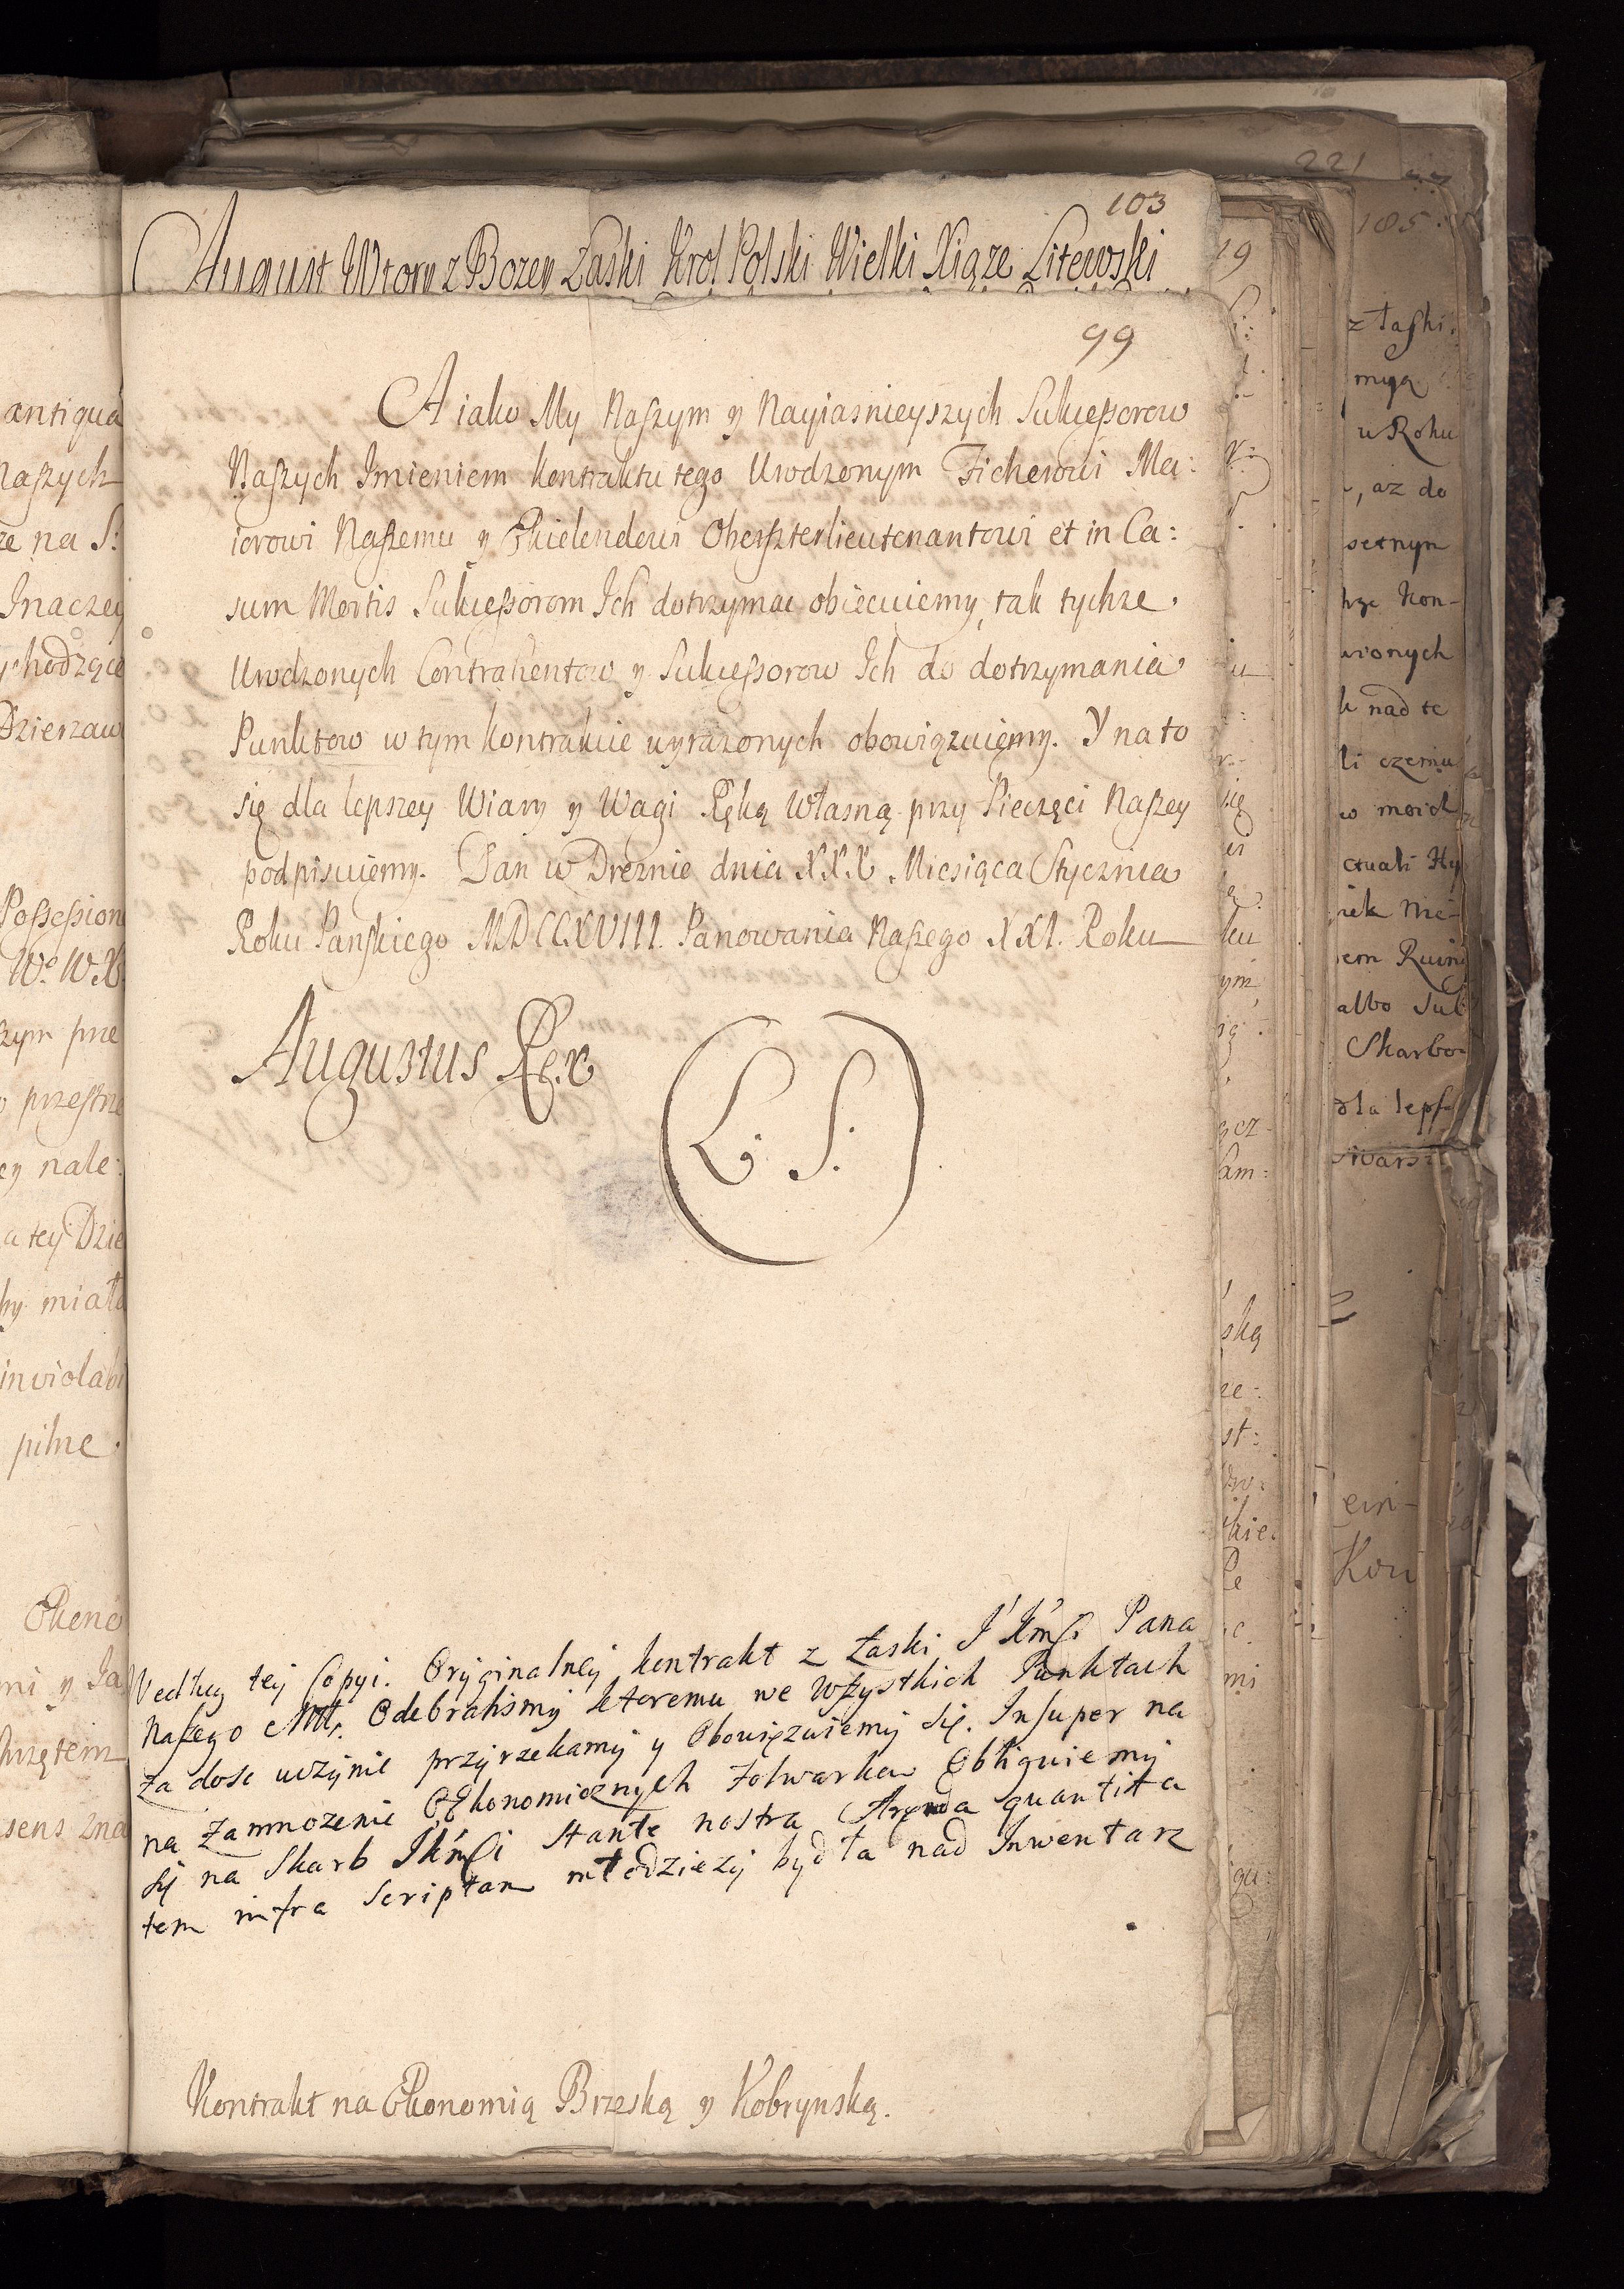 103
August Wtory z Bozey Łaski Krol Polski Wielki Xiąze Litewski
99
A iako My Naszym y Nayiasnieyszych Sukcessorow
Naszych Imieniem kontraktu tego Urodzonym Ficherowi Ma:
iorowi Naszemu y Obersterlieutenantowi et in Ca:
sum Mortis Sukcessorom Ich dotrzymac obiecuiemy, tak tychze
Urodzonych Contrahentow y Sukcessorow Ich do dotrzymania
Punktow w tym kontrakcie wyrazonych obowięzuięmy. Y na to
się dla lepszey Wiary y Wagi Ręką Własną przy Pieczęci Naszey
podpisuiemy. Dan w Dreznie dnia XXX Miesiąca Stycznia
Roku Panskiego MDCCXVIII. Panowania Naszego XXI. Roku
Augustus Rex
L. S.
Wedlug tej Copyi. Oryginalnej kontrakt z Łaski J K Msci Pana
Naszego Mił. Odebralismy ktoremu we wszystkich Punktach
za dosc uczynic przyrzekamy y Obowięzuiemy się. Insuper na
na zamnozenie OEkonomicznych Folwarkow Obliguiemy
się na Skarb JKMsci stante nostra Arenda quantita
tem infra Scriptam młodziezy bydła nad Inwentarz
Kontrakt na Ekonomią Brzeską y Kobrynską.
antiqua
Naszych
ze na S:
Inaczey
ychodzące
Dzierzaw
Possession
W. W. X
szym prze
przestrze
ey nale:
a tey Dzie
by miała
inviolabi
pilne
Ekono
ni y Ja
sens zna
19
221
105
z łaski
myą
u Roku
, az do
setnym
Kon-
wionych
k nad te
li czemu
w moich
ctuali Hy
Nie-
em Ruing
albo Suk
Skarbo-
dla leps
Warsz
ein-
Kon